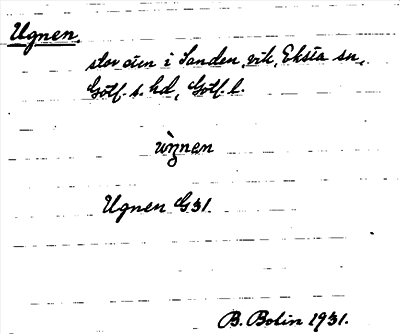 Ugnen
stor sten i Sanden, vik, Eksta sn,
Gotl. s. hd, Gotl. l.
Ugnen G31.
B. Bolin 1931.